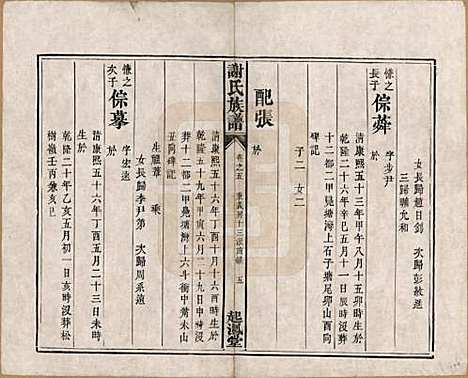 女長歸趙日釗　次歸彭放進
三歸曠允和
慷之長子　倧蕣　字步尹
生於
清康熙五十三年甲午八月十五卯時歿
於
乾隆二十六年辛巳五月十一日辰時葬
十二都二甲晃塘灣上石子塘尾卯山酉向
有碑記
配張
於
子二　女二
謝氏族譜
卷之五
五
起鳳堂
丑向碑記
十二都二甲晃塘灣上六斗衝中嶺未山
乾隆五十九年甲寅六月二十九日申時歿
清康熙五十六年丁酉十月十六酉時歿
生於
生庭葦　乘
女長歸李尹第　次歸周系遠
慷之次子　倧摹　字宏遠
生於
清康熙五十六年丁酉五月二十三日未時
於
乾隆二十年乙亥五月初一日亥時沒葬松
樹嶺壬丙兼亥巳